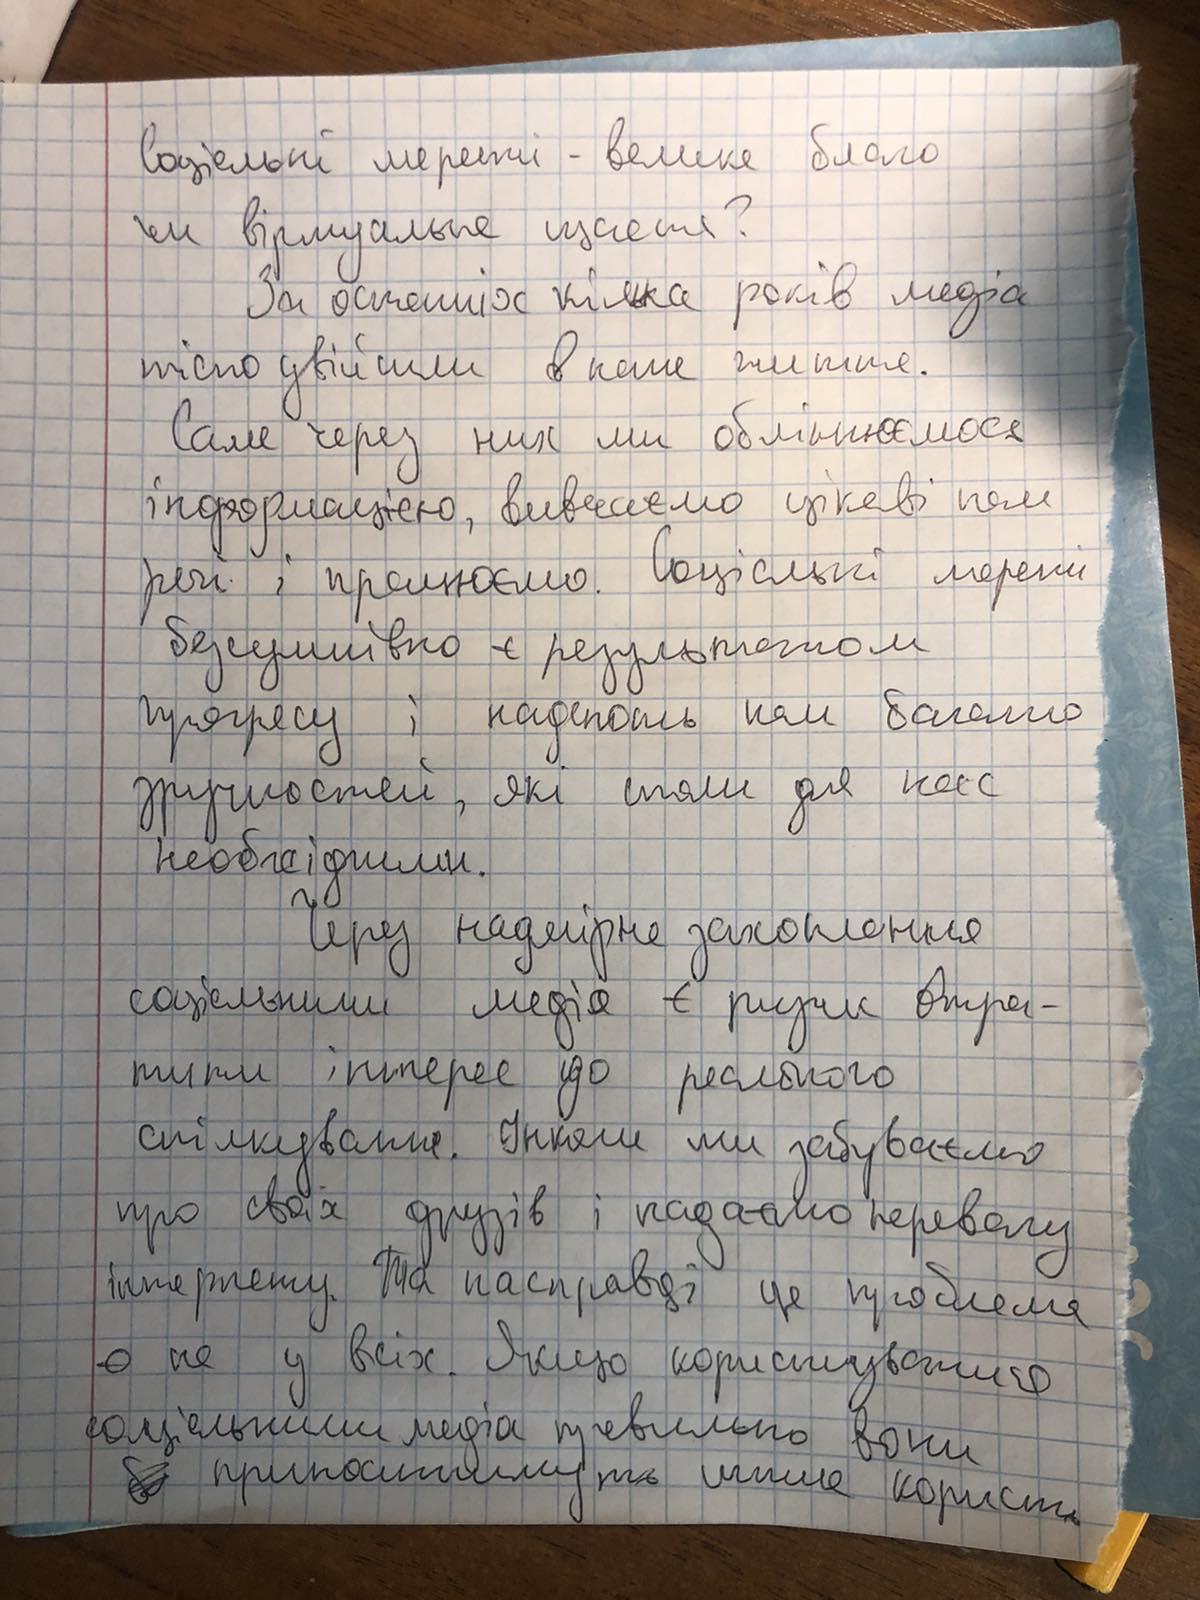 Соціальні мережі - велике благо
чи віртуальне щастя?
За останніх кілька років медіа
тісно увійшли в наше життя.
Саме через них ми обмінюємося
інформацією, вивчаємо цікаві нам
речі і працюємо. Соціальні мережі
безсумнівно є результатом
прогресу і надають нам багато
зручностей, які стали для нас
необхідними.
Через надмірне захоплення
соціальними медіа є ризик втра-
тити інтерес до реального
спілкування. Інколи ми забуваємо
про своїх друзів і надаємо перевагу
інтернету. Та насправді це проблема
не у всіх. Якщо користуватися
соціальними медіа правильно вони
приноситимуть лише користь